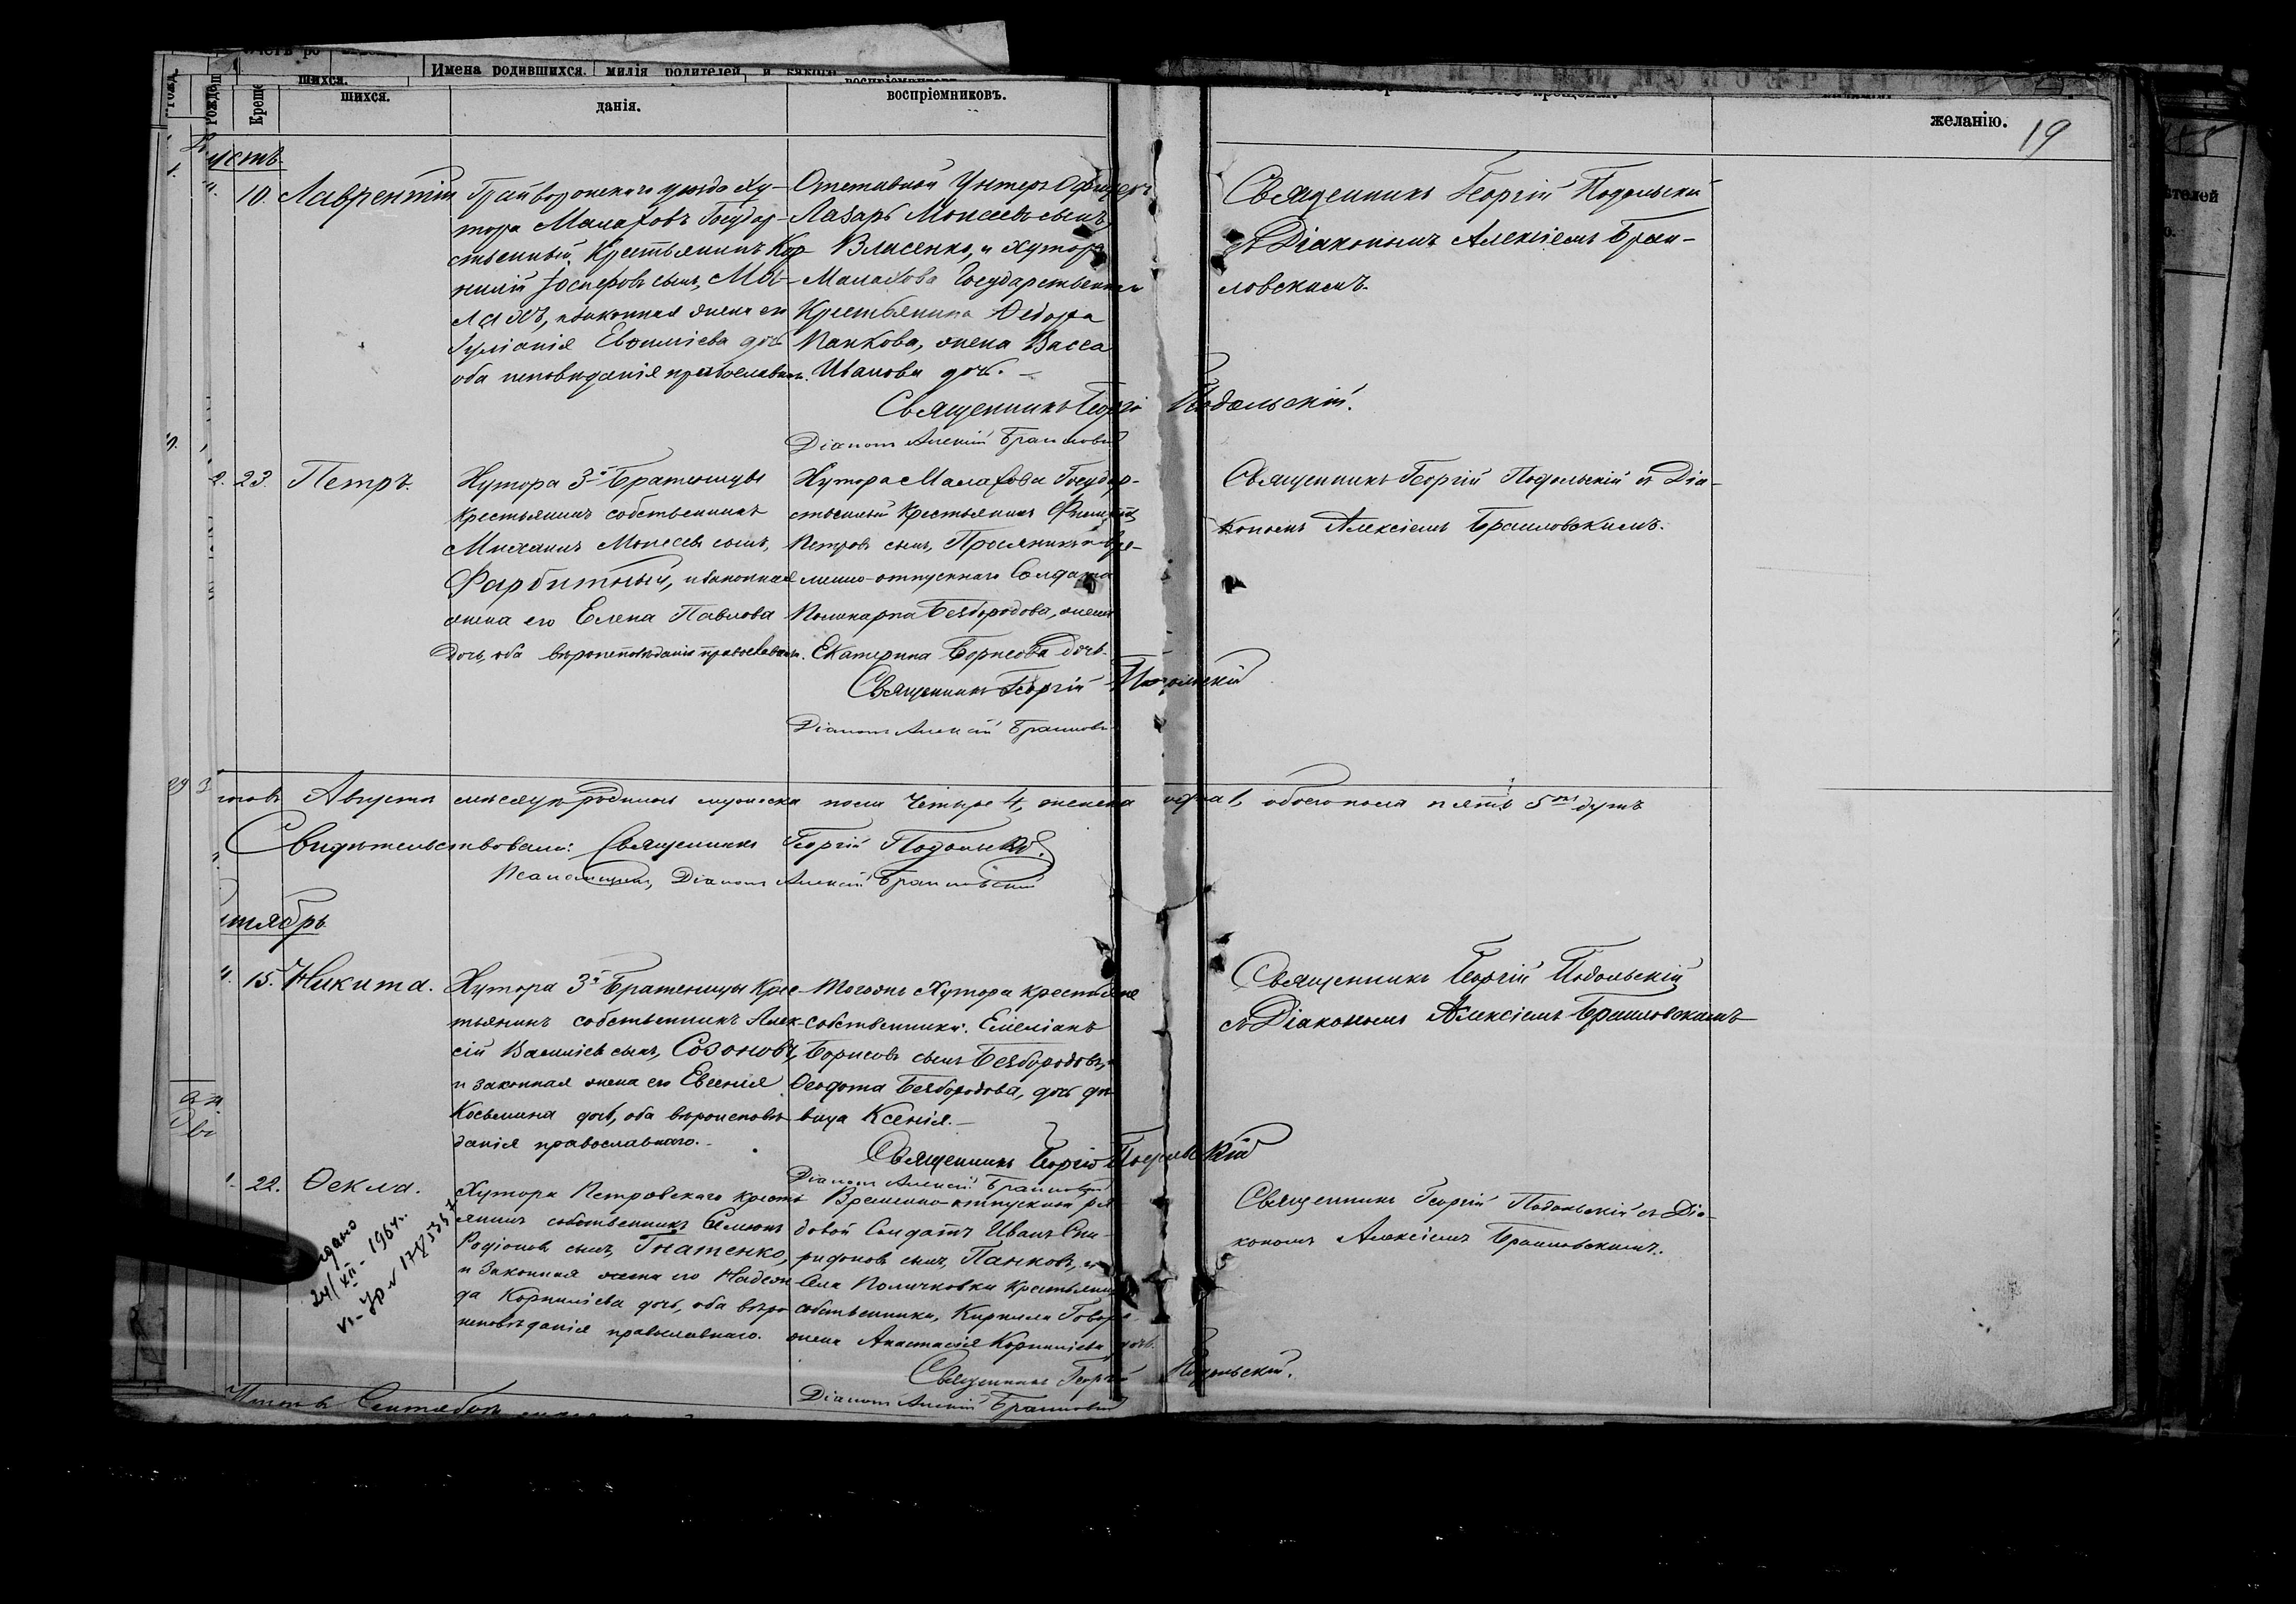 Имена родившихся.
шихся.
шихся.
данія.
воспріемниковъ.
желанію.
19
10. Лаврентій
Грайворонскаго уѣзда Ху-
тора Малахов Государ-
ственный Крестьянинъ Кор-
нилій Іосифовъ сынъ,
и законная жена его
Іуліанія Евфиміева дочь
оба исповѣданія православнаго.
Отставной Унтеръ Офицеръ
Лазарь Моисеевъ сынъ
Власенко, и Хутора
Малахова Государственнаго
Крестьянина Ѳедора
Панкова, жена Васса
Иванова дочь.
Священникъ Георгій Подольскій
съ Діакономъ Алексіемъ Браи-
ловскимъ.
Священникъ Георгій Подольскій.
Діаконъ Алексій Браиловскій
23. Петръ.
Хутора 3й Братеницы
Крестьянинъ собственникъ
Михаилъ Моисеевъ сынъ,
Фарбитный, и законная
жена его Елена Павлова
дочь, оба вѣроисповѣданія православнаго.
Хутора Малахова Государ-
ственный Крестьянинъ
Петровъ сынъ, и вре-
менно-отпускнаго Солдата
Поликарпа Безбородова, жена
Екатерина Борисова дочь.
Священникъ Георгій Подольскій съ Діа-
кономъ Алексіемъ Браиловскимъ.
Священникъ Георгій Подольскій
Діаконъ Алексій Браиловскій
Августа мѣсяцѣ родилось мужеска пола четыре 4, женска одна 1, обоего пола пять 5ть душъ
Свидѣтельствовали: Священникъ Георгій Подольскій.
Псаломщикъ, Діаконъ Алексій Браиловскій
тябрь
15. Никита.
Хутора 3й Братеницы Крес-
тьянинъ собственникъ Алек-
сій Василіевъ сынъ, Созоновъ,
и законная жена его Евгенія
Косьмина дочь, оба вѣроисповѣ-
данія православнаго.
Тогожъ Хутора крестьяне
собственники: Емеліанъ
Борисовъ сынъ Безбородовъ, и
Ѳеодота Безбородова, дочь дѣ-
вица Ксенія.
Священникъ Георгій Подольскій
съ Діакономъ Алексіемъ Браиловскимъ
Священникъ Георгій Подольскій
Діаконъ Алексій Браиловскій
22. Ѳекла.
Хутора Петровскаго крестъ-
янинъ собственникъ Симеонъ
Родіоновъ сынъ, Гнатенко,
и законная жена его Надеж-
да Корниліева дочь, оба вѣро-
исповѣданія православнаго.
Временно-отпускной ря-
довой Солдатъ Иванъ Спи-
ридоновъ сынъ, Панковъ, и
Села Поличковки Крестьянина
собственника, Кирилла Говора
жена Анастасія Корниліева дочь.
Священникъ Георгій Подольскій съ Діа-
кономъ Алексіемъ Браиловскимъ.
24/XII - 1964г.
Священникъ Георгій Подольскій.
Діаконъ Алексій Браиловскій
Итого Сентября